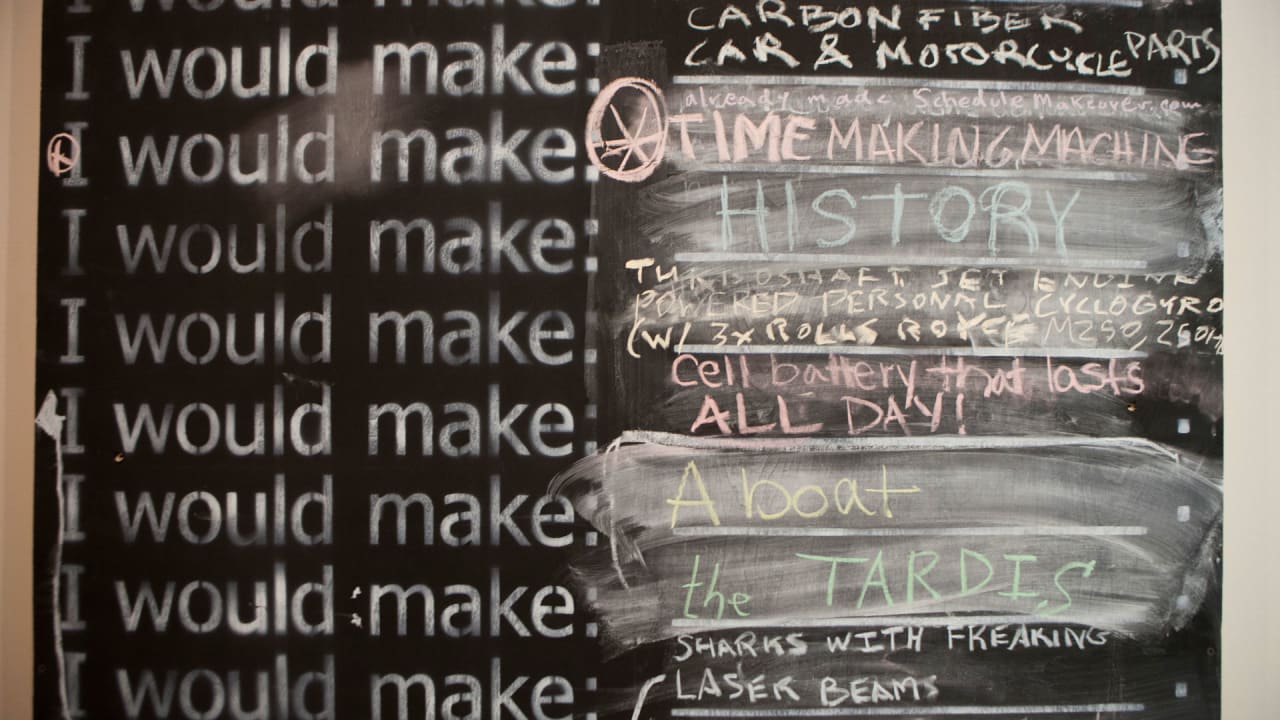 I would make: CARBON FIBER
CAR & MOTORCYCLE PARTS
already made ScheduleMakeover.com
I would make: TIME MAKING MACHINE
I would make: HISTORY
TURBOSHAFT JET ENGINE
I would make: POWERED PERSONAL CYCLOGYRO
(W/ 3x ROLLS ROYCE M250, 250H
I would make: Cell battery that lasts
ALL DAY!
I would make: A boat
I would make: the TARDIS
SHARKS WITH FREAKING
I would make: LASER BEAMS